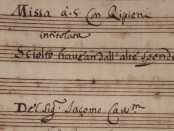 Missa à.5. Con Ripieni
intitolata
Sciolto havean dall' alte sponde
Del Sig.r Iacomo